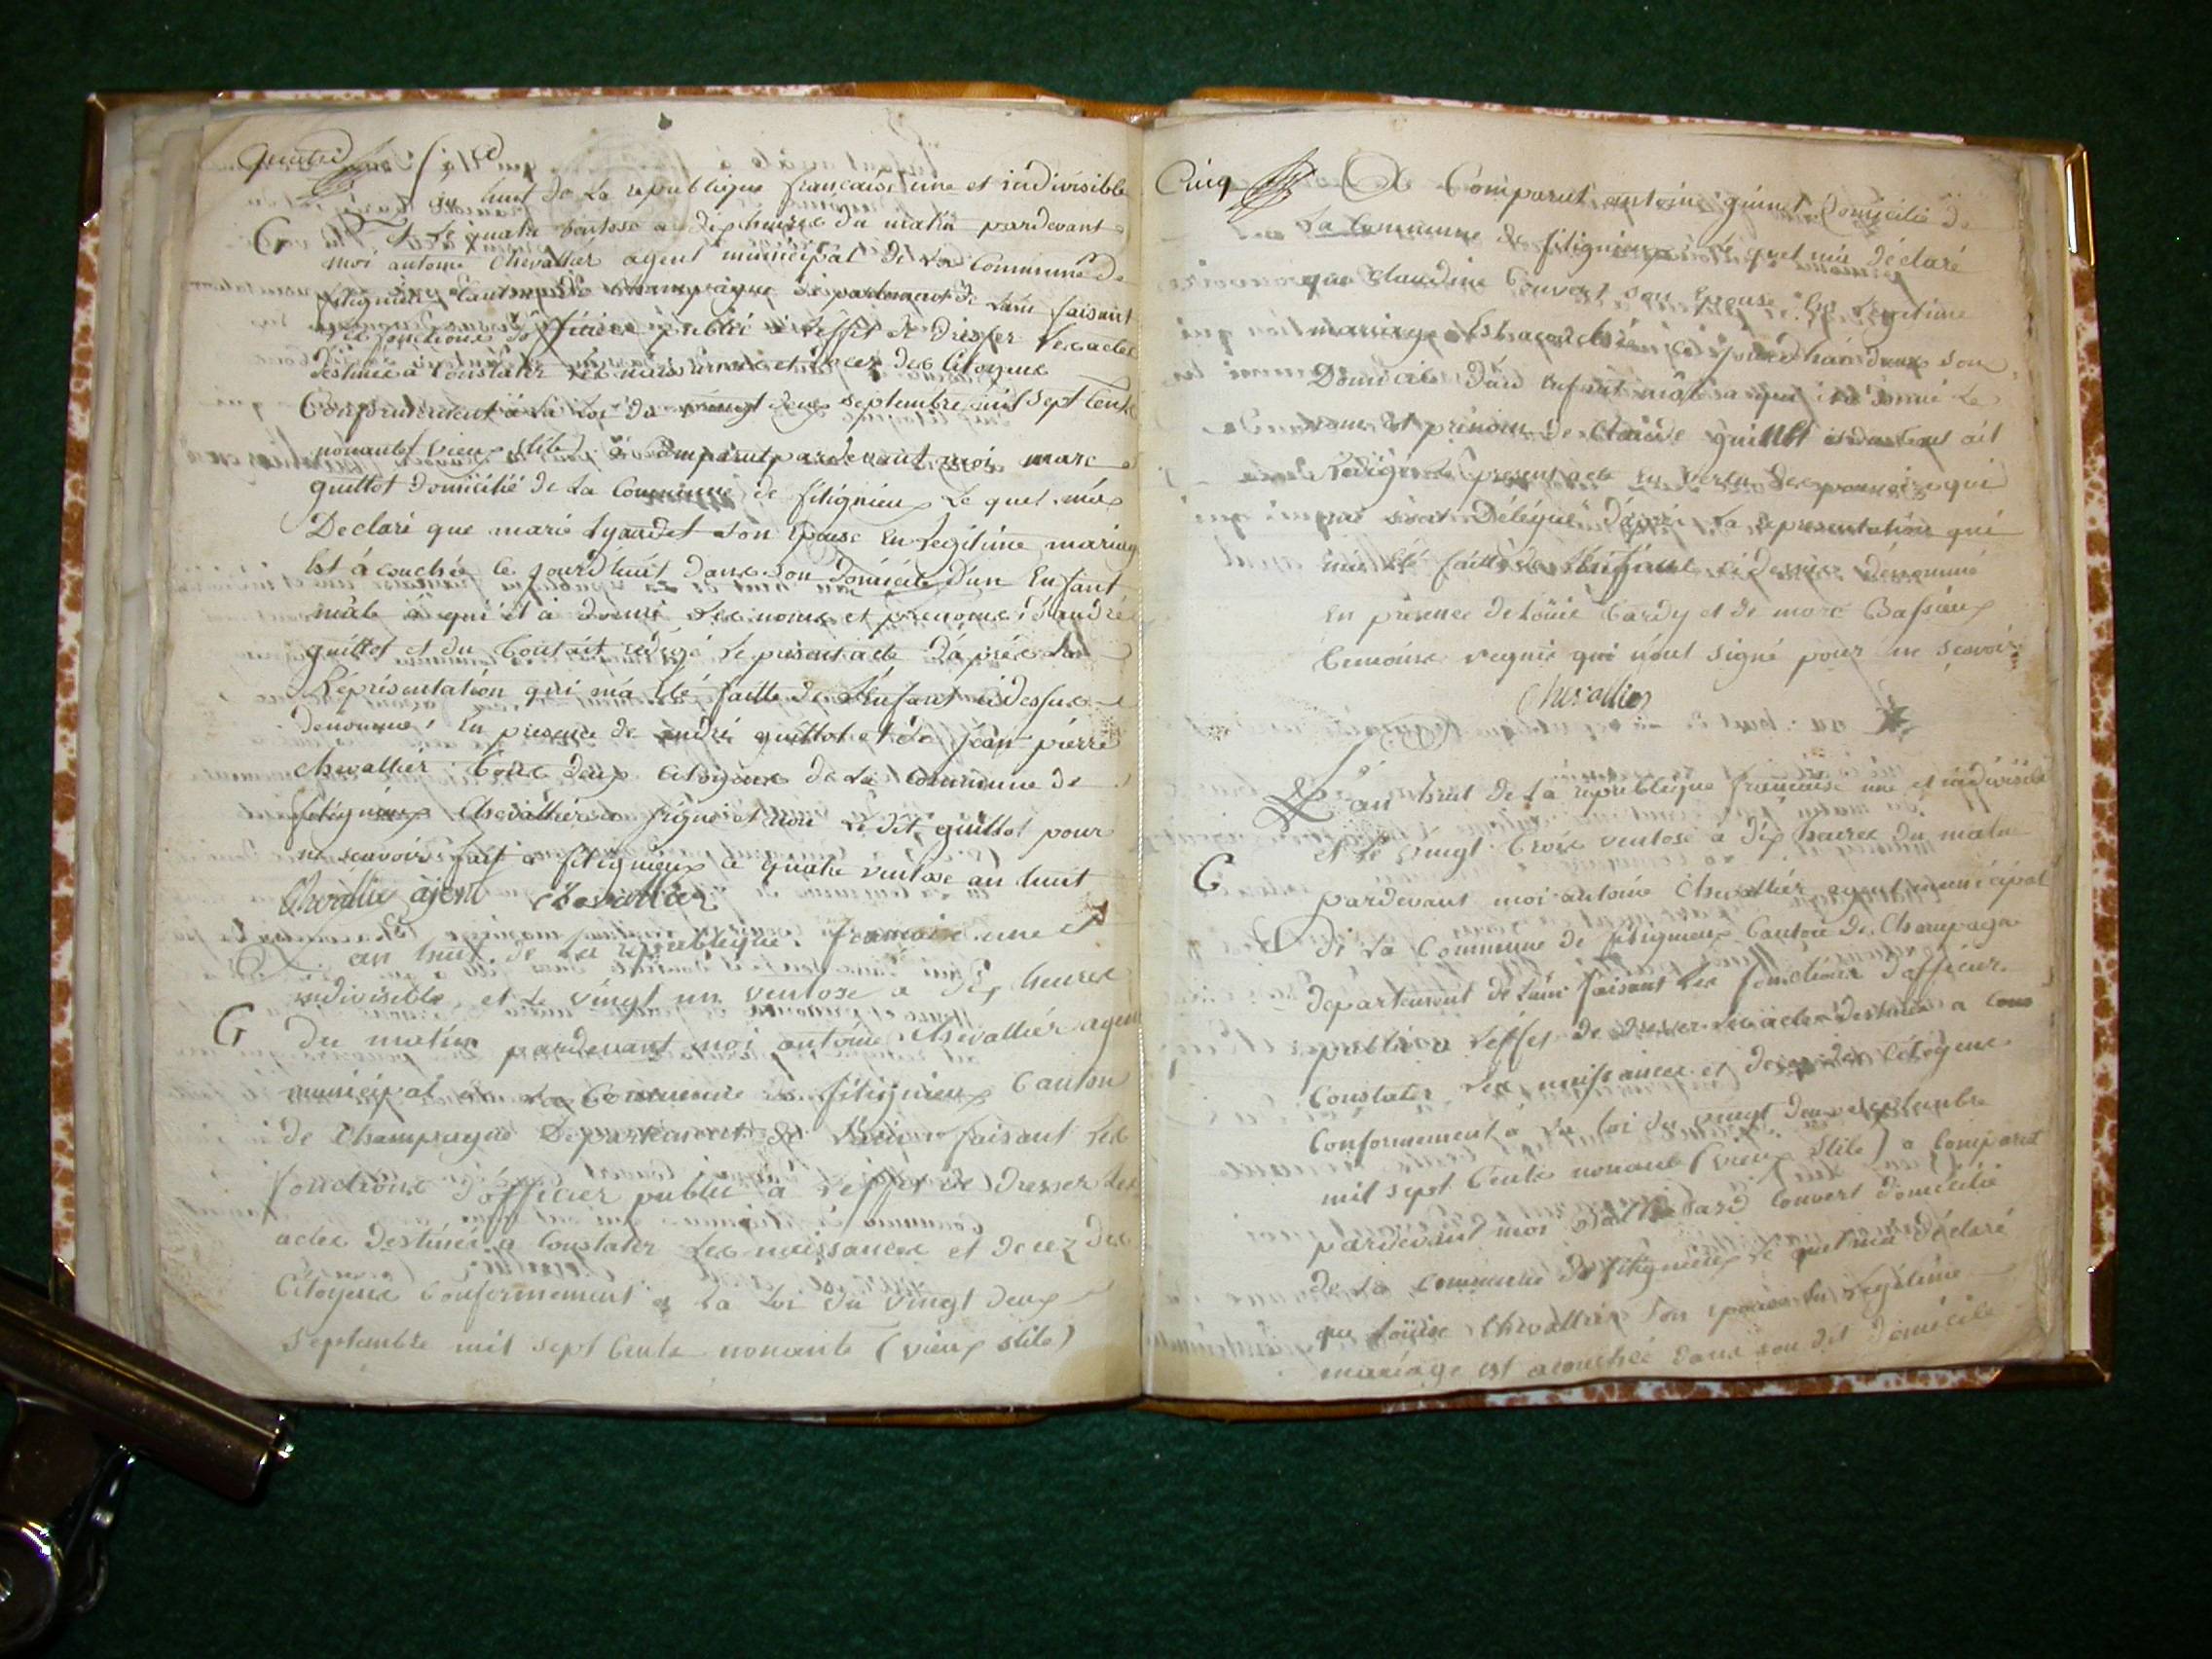 an huit de la republique francaise une et indivisible
G et le quatre ventose a dix heures du matin pardevant
moi antoine Chevallier agent municipal de la Commune de
fitignieux Canton de Champagne departement de Lain faisant
les fonctions d'officier public a l'effet de dresser les actes
destinés a Constater les naissances et decez des Citoyens
Conformement à la Loi du vingt deux septembre mil sept Cents
nonante (vieux stile) à Comparut pardevant moi marc
guillot domicilié de la Commune de fitignieux Le quel m'a
Declaré que marie son epouse En Legitime mariage
Est acouchée ce jourd'huit dans son domicile d'un Enfant
mâle a qui il à donné Les noms et prenoms d'andré
guillot et du tout ait redigé le present acte d'aprés la
Réprésentation qui m'a été faitte de L'enfant ci dessus
denommé, En presence de andré guillot et de jean pierre
Chevallier tous deux Citoyens de la Commune de
fitignieux Chevallier a signé et non Le dit guillot pour
ne scavoir fait a fitignieux ce quatre ventose an huit
Chevallier ajent Chevallier
an huit de la republique francaise une et
indivisible, et le vingt un ventose a dix heures
G du matin pardevant moi antoine Chevallier agent
municipal de la Commune de fitignieux Canton
de Champagne Departement de Lain faisant les
fonctions d'officier public a L'effet de dresser les
actes destinés a Constater Les naissances et decez des
Citoyens Conformement a la Loi du vingt deux
septembre mil sept Cents nonante (vieux stile)
Cinq A Comparut antoine guinet Domicilié de
La Commune de fitignieux Le quel m'a déclaré
que Claudine Couvert son Epouse En Legitime
mariage Est acouchée ce jourd'hui dans son
Domicile d'un Enfant mâle a qui il à donné Le
nom et prénom de Claude guinet ait
redigé Le present acte En vertu des pouvoirs qui
me sont Délégué d'aprés La representation qui
m'a été faitte de L'enfant ci dessus dénommé
En présence de Loüis Cardy et de marc Bassieux
temoins requis qui n'ont signé pour ne scavoir
Chevallier
L'an huit de la republique francaise une et indivisible
et le vingt trois ventose a dix heures du matin
G pardevant moi antoine Chevallier agent municipal
de la Commune de fitignieux Canton de Champagne
departement de Lain faisant les fonctions d'officier
public a L'effet de dresser les actes destinés a cons
Constater Les naissances et decez des Citoyens
Conformement a la Loi du vingt deux septembre
mil sept Cents nonante (vieux stile) a Comparut
pardevant moi Balthesard Couvert domicilié
de la Commune de fitignieux Le quel m'a déclaré
que Loüise Chevallier son epouse En Legitime
mariage est acouchée dans son dit domicile